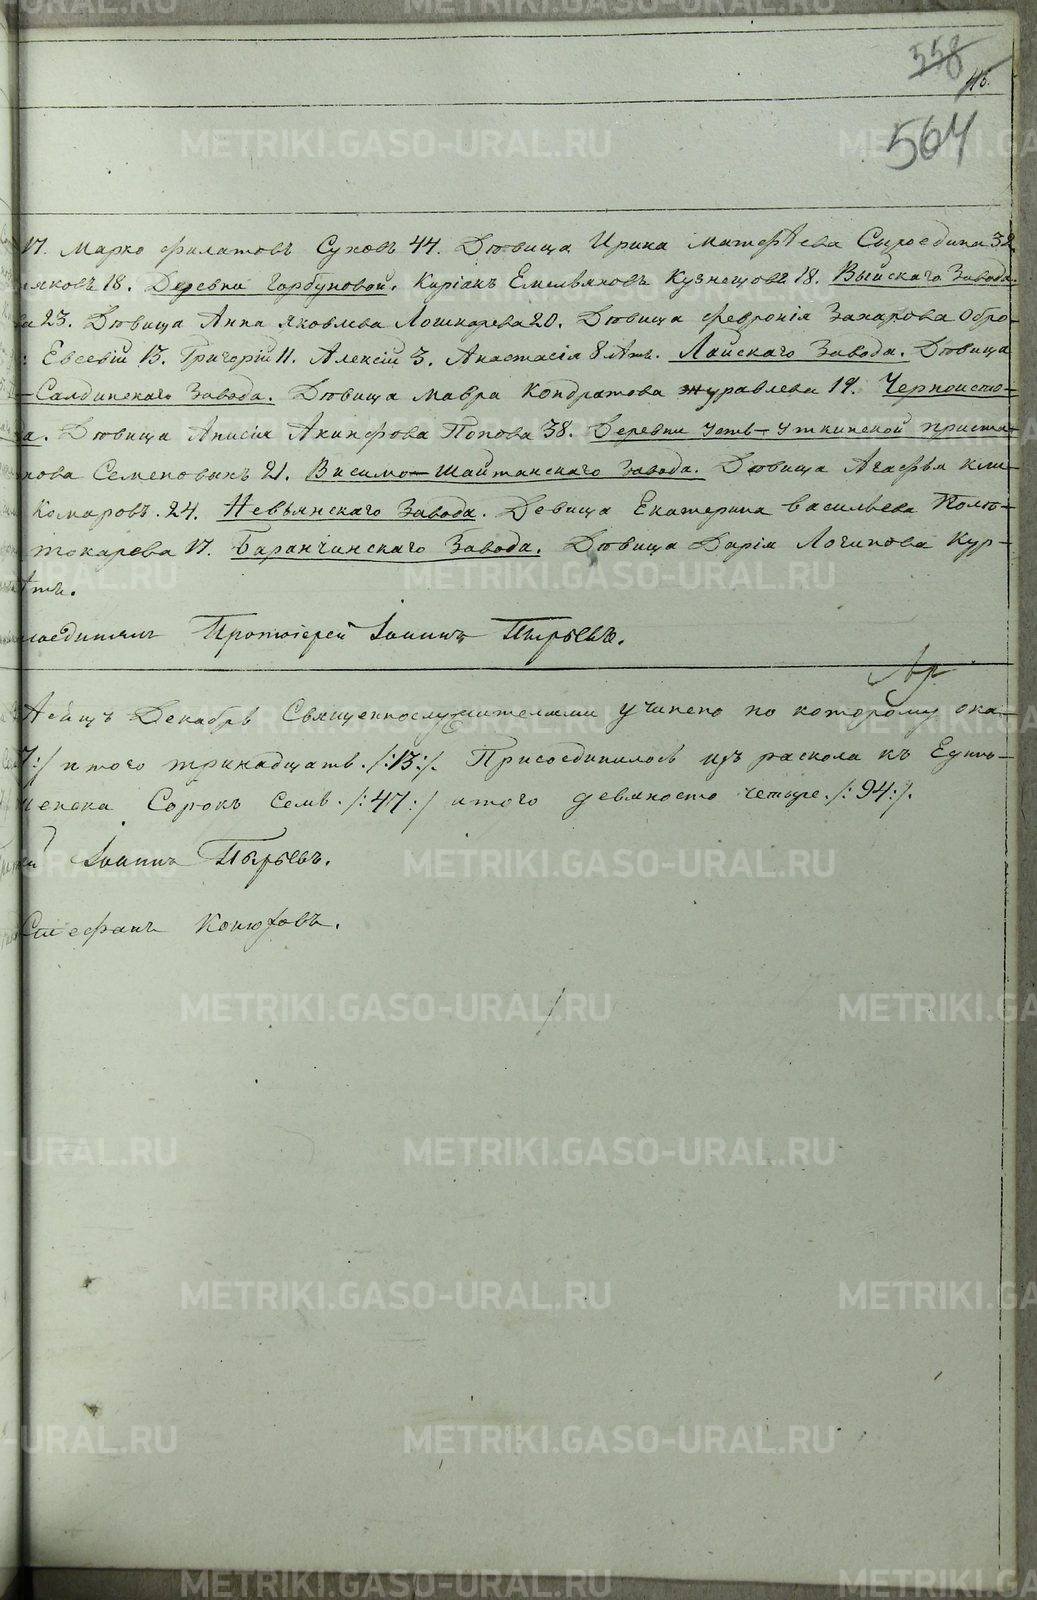 558
45.
564
17. Марко Филатовъ Суховъ 44. Дѣвица Ирина Матфѣева Сыроедина 32.
яковъ 18. Деревни Горбуновой. Киріакъ Емельяновъ Кузнецовъ 18. Выйскаго Завода
ва 23. Дѣвица Анна Яковлева Лошкарева 20. Дѣвица Февронія Захарова Обро-
: Евсевій 15. Григорій 11. Алексій 3. Анастасія 8 лѣтъ. Лайскаго Завода. Дѣвица
-Салдинскаго Завода. Дѣвица Мавра Кондратова Журавлева 19. Черноисто-
а. Дѣвица Анисія Акинфова Попова 38. Деревни Усть-Уткинской приста-
нова Семеновыхъ 21. Висимо-Шайтанскаго Завода. Дѣвица Агафья Кли-
Комаровъ. 24. Невьянскаго Завода. Девица Екатерина Васильева Полю-
токарева 17. Баранчинскаго Завода. Дѣвица Дарія Логинова Кур-
лѣтъ.
Протоіерей Іоаннъ Пырьевъ.
Декабрь Священнослужителями учинено по которому ока-
7:/ итого тринадцать ./:13:/. Присоединилось изъ раскола къ Едино-
женска Сорокъ семь ./:47:/ итого девяносто четыре ./:94:/.
ей Іоаннъ Пырьевъ.
Стефанъ Конюховъ.
METRIKI.GASO-URAL.RU